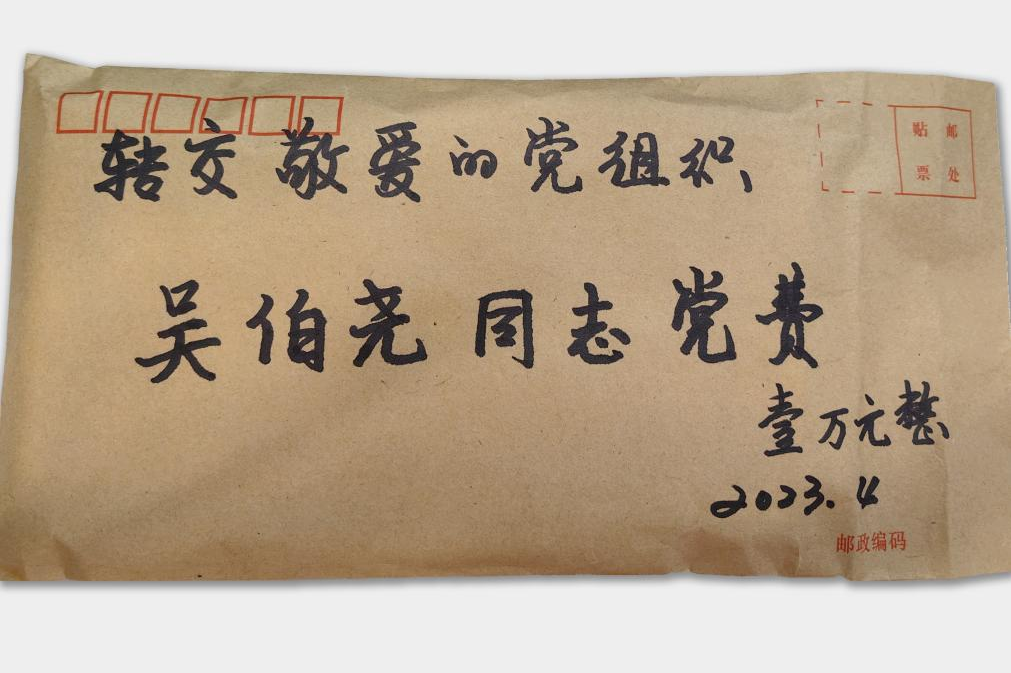 贴 邮
票 处
转交敬爱的党组织
吴伯尧同志党费
壹万元整
2023.4
邮政编码